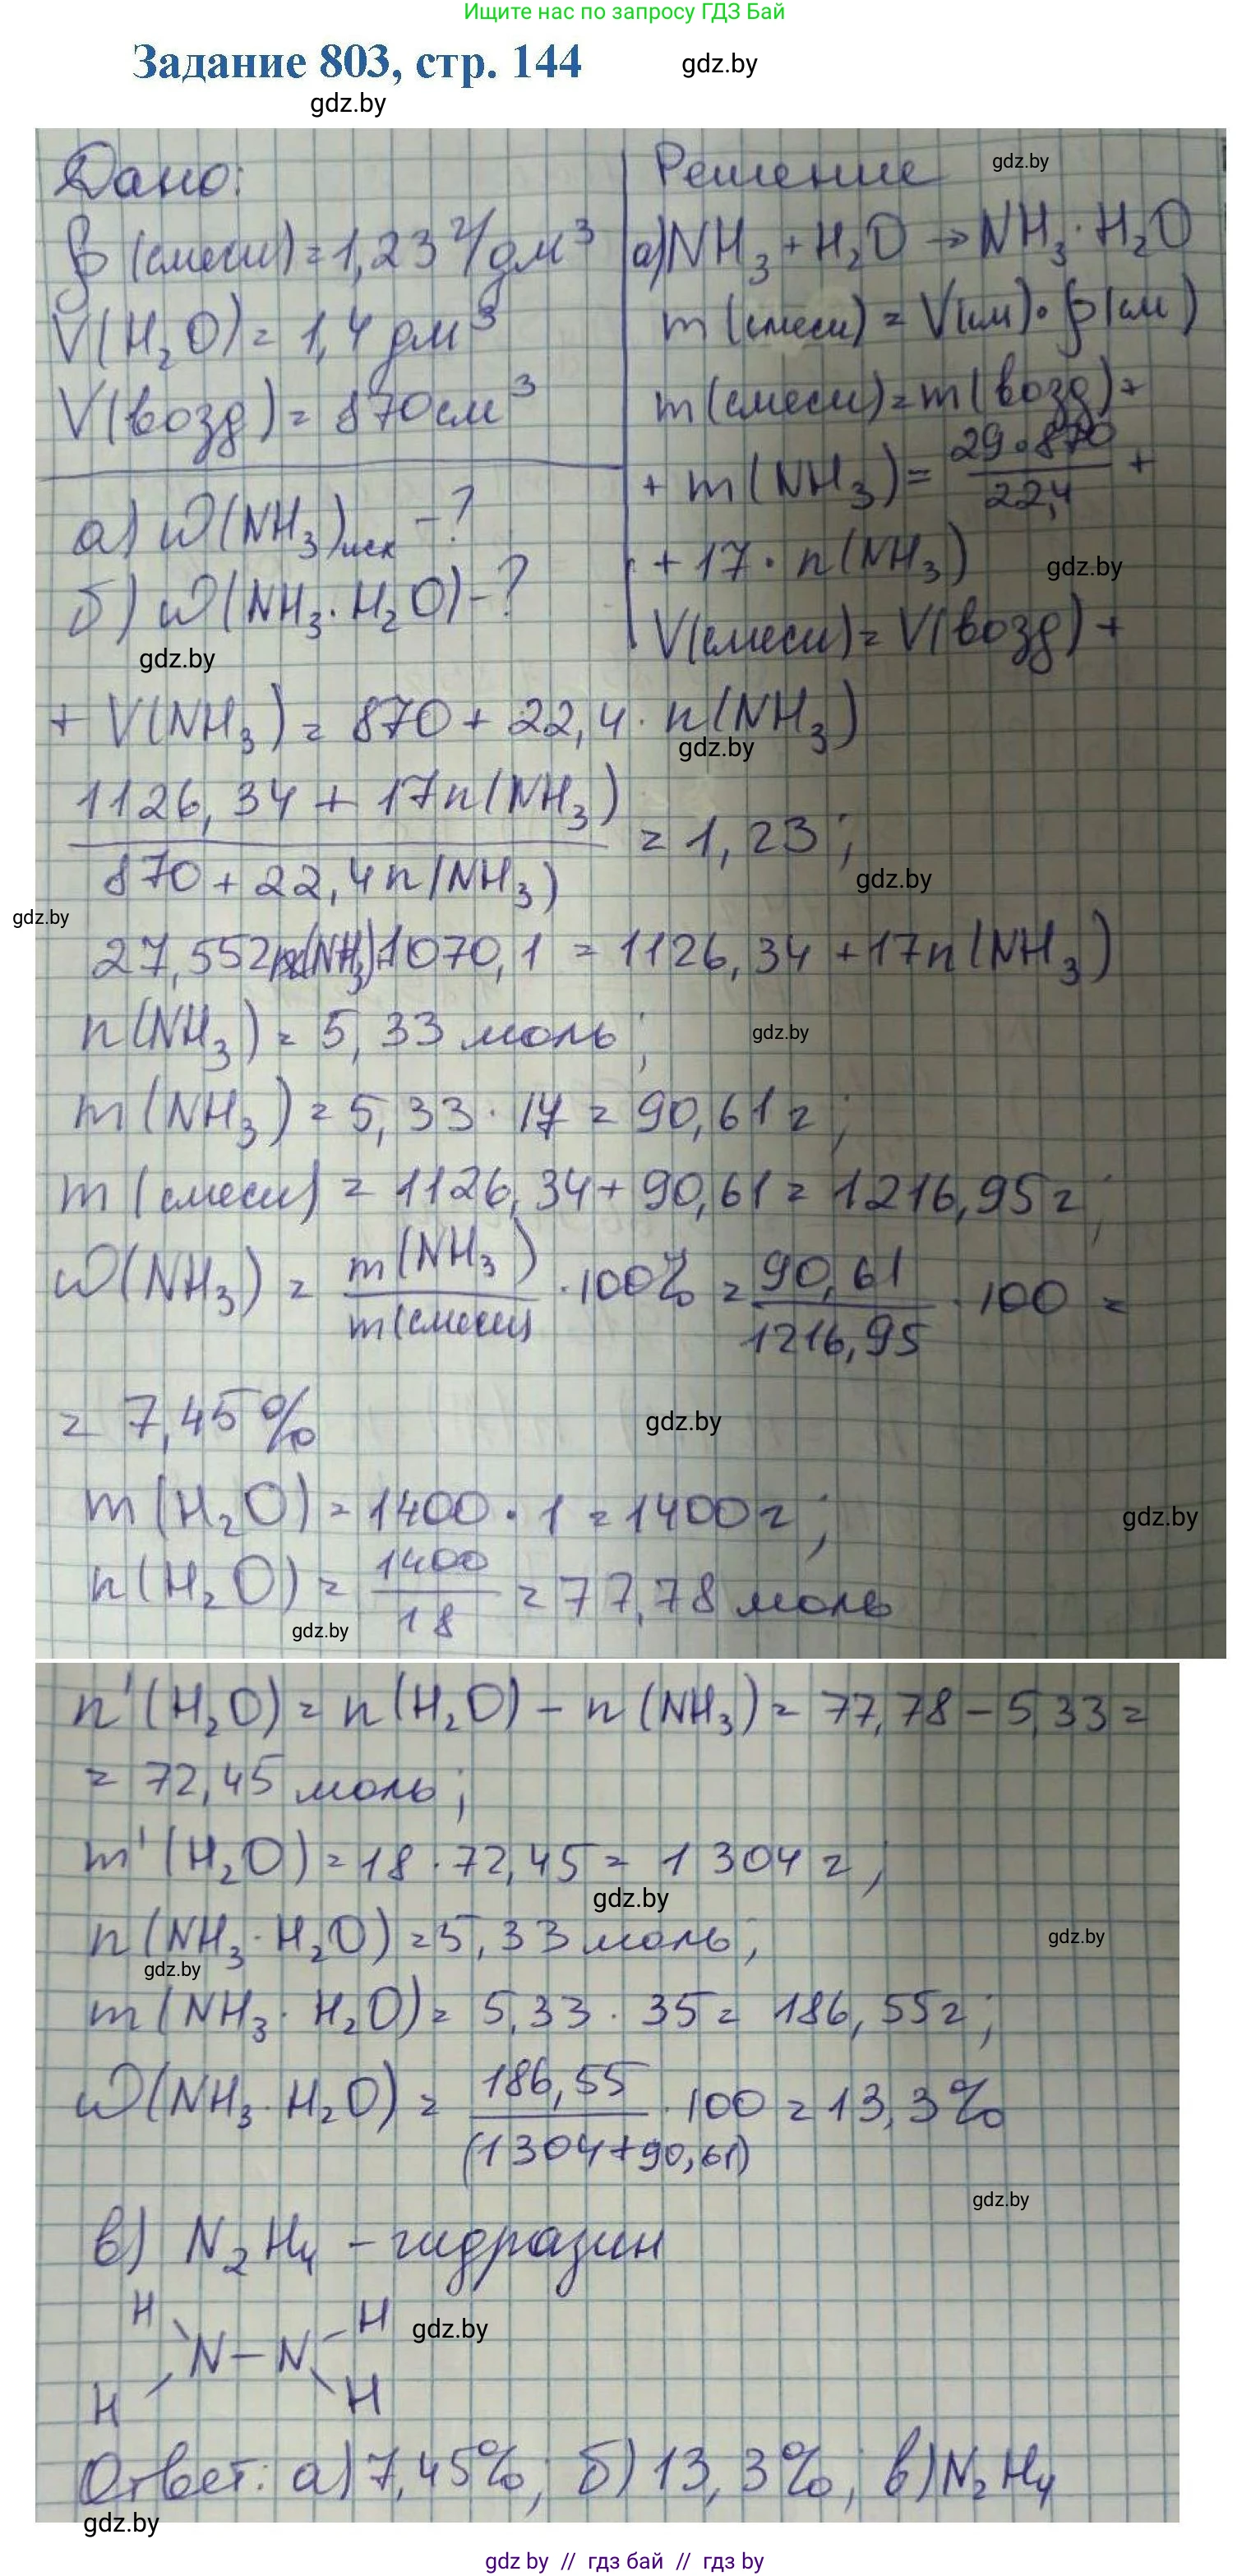 Ищите нас по запросу ГДЗ Бай
Задание 803, стр. 144
gdz.by
gdz.by
Дано:
ρ(смеси) = 1,23 г/дм³
V(H₂O) = 1,4 дм³
V(возд) = 870 см³
а) ω(NH₃)исх - ?
б) ω(NH₃·H₂O) - ?
gdz.by
Решение
gdz.by
а) NH₃ + H₂O → NH₃·H₂O
m(смеси) = V(см)·ρ(см)
m(смеси) = m(возд) +
+ m(NH₃) = 29·870/22,4 +
+ 17·n(NH₃)
gdz.by
V(смеси) = V(возд) +
+ V(NH₃) = 870 + 22,4·n(NH₃)
gdz.by
1126,34 + 17n(NH₃) / 870 + 22,4n(NH₃) = 1,23;
gdz.by
gdz.by
27,552n(NH₃)+1070,1 = 1126,34 + 17n(NH₃)
n(NH₃) = 5,33 моль;
gdz.by
m(NH₃) = 5,33·17 = 90,61 г;
m(смеси) = 1126,34 + 90,61 = 1216,95 г;
ω(NH₃) = m(NH₃)/m(смеси) ·100% = 90,61/1216,95 ·100 =
= 7,45%
gdz.by
m(H₂O) = 1400·1 = 1400 г;
gdz.by
n(H₂O) = 1400/18 = 77,78 моль
gdz.by
n'(H₂O) = n(H₂O) - n(NH₃) = 77,78 - 5,33 =
= 72,45 моль;
m'(H₂O) = 18·72,45 = 1304 г;
gdz.by
n(NH₃·H₂O) = 5,33 моль;
gdz.by
gdz.by
m(NH₃·H₂O) = 5,33·35 = 186,55 г;
ω(NH₃·H₂O) = 186,55/(1304+90,61) ·100 = 13,3%
gdz.by
в) N₂H₄ - гидразин
H H
gdz.by
N - N
H H
Ответ: а) 7,45%; б) 13,3%; в) N₂H₄
gdz.by
gdz by // гдз бай // гдз by